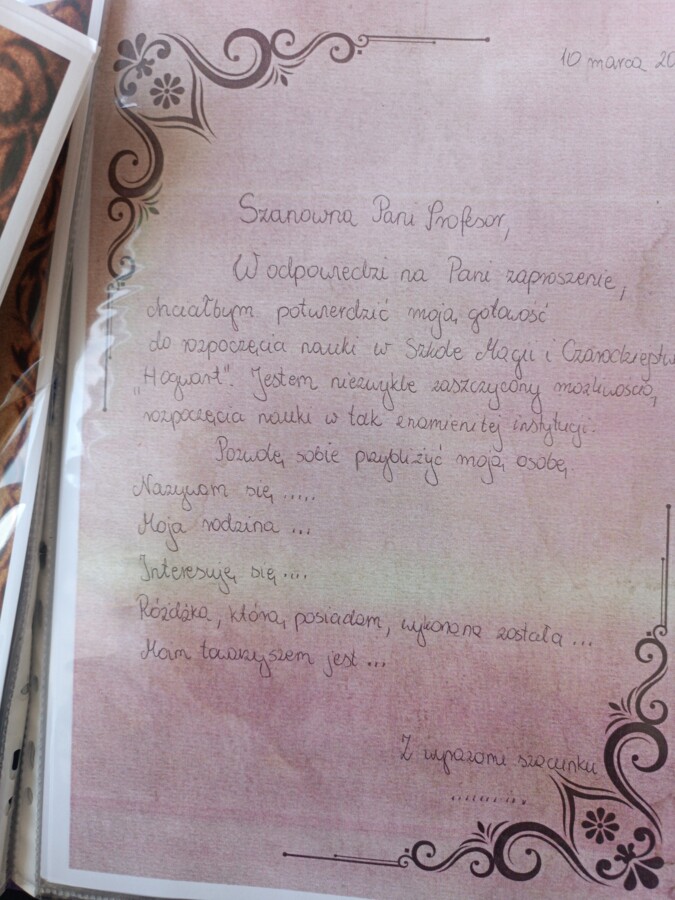 10 marca 20
Szanowna Pani Profesor,
W odpowiedzi na Pani zaproszenie,
chciałbym potwierdzić moją gotowość
do rozpoczęcia nauki w Szkole Magii i Czarodziejstw
„Hogwart". Jestem niezwykle zaszczycony możliwością,
rozpoczęcia nauki w tak znamienitej instytucji.
Pozwolę sobie przybliżyć moją osobę.
Nazywam się .....
Moja rodzina ...
Interesuję się ....
Różdżka, którą posiadam, wykonana została ...
Moim towarzyszem jest ...
Z wyrazami szacunku
.........